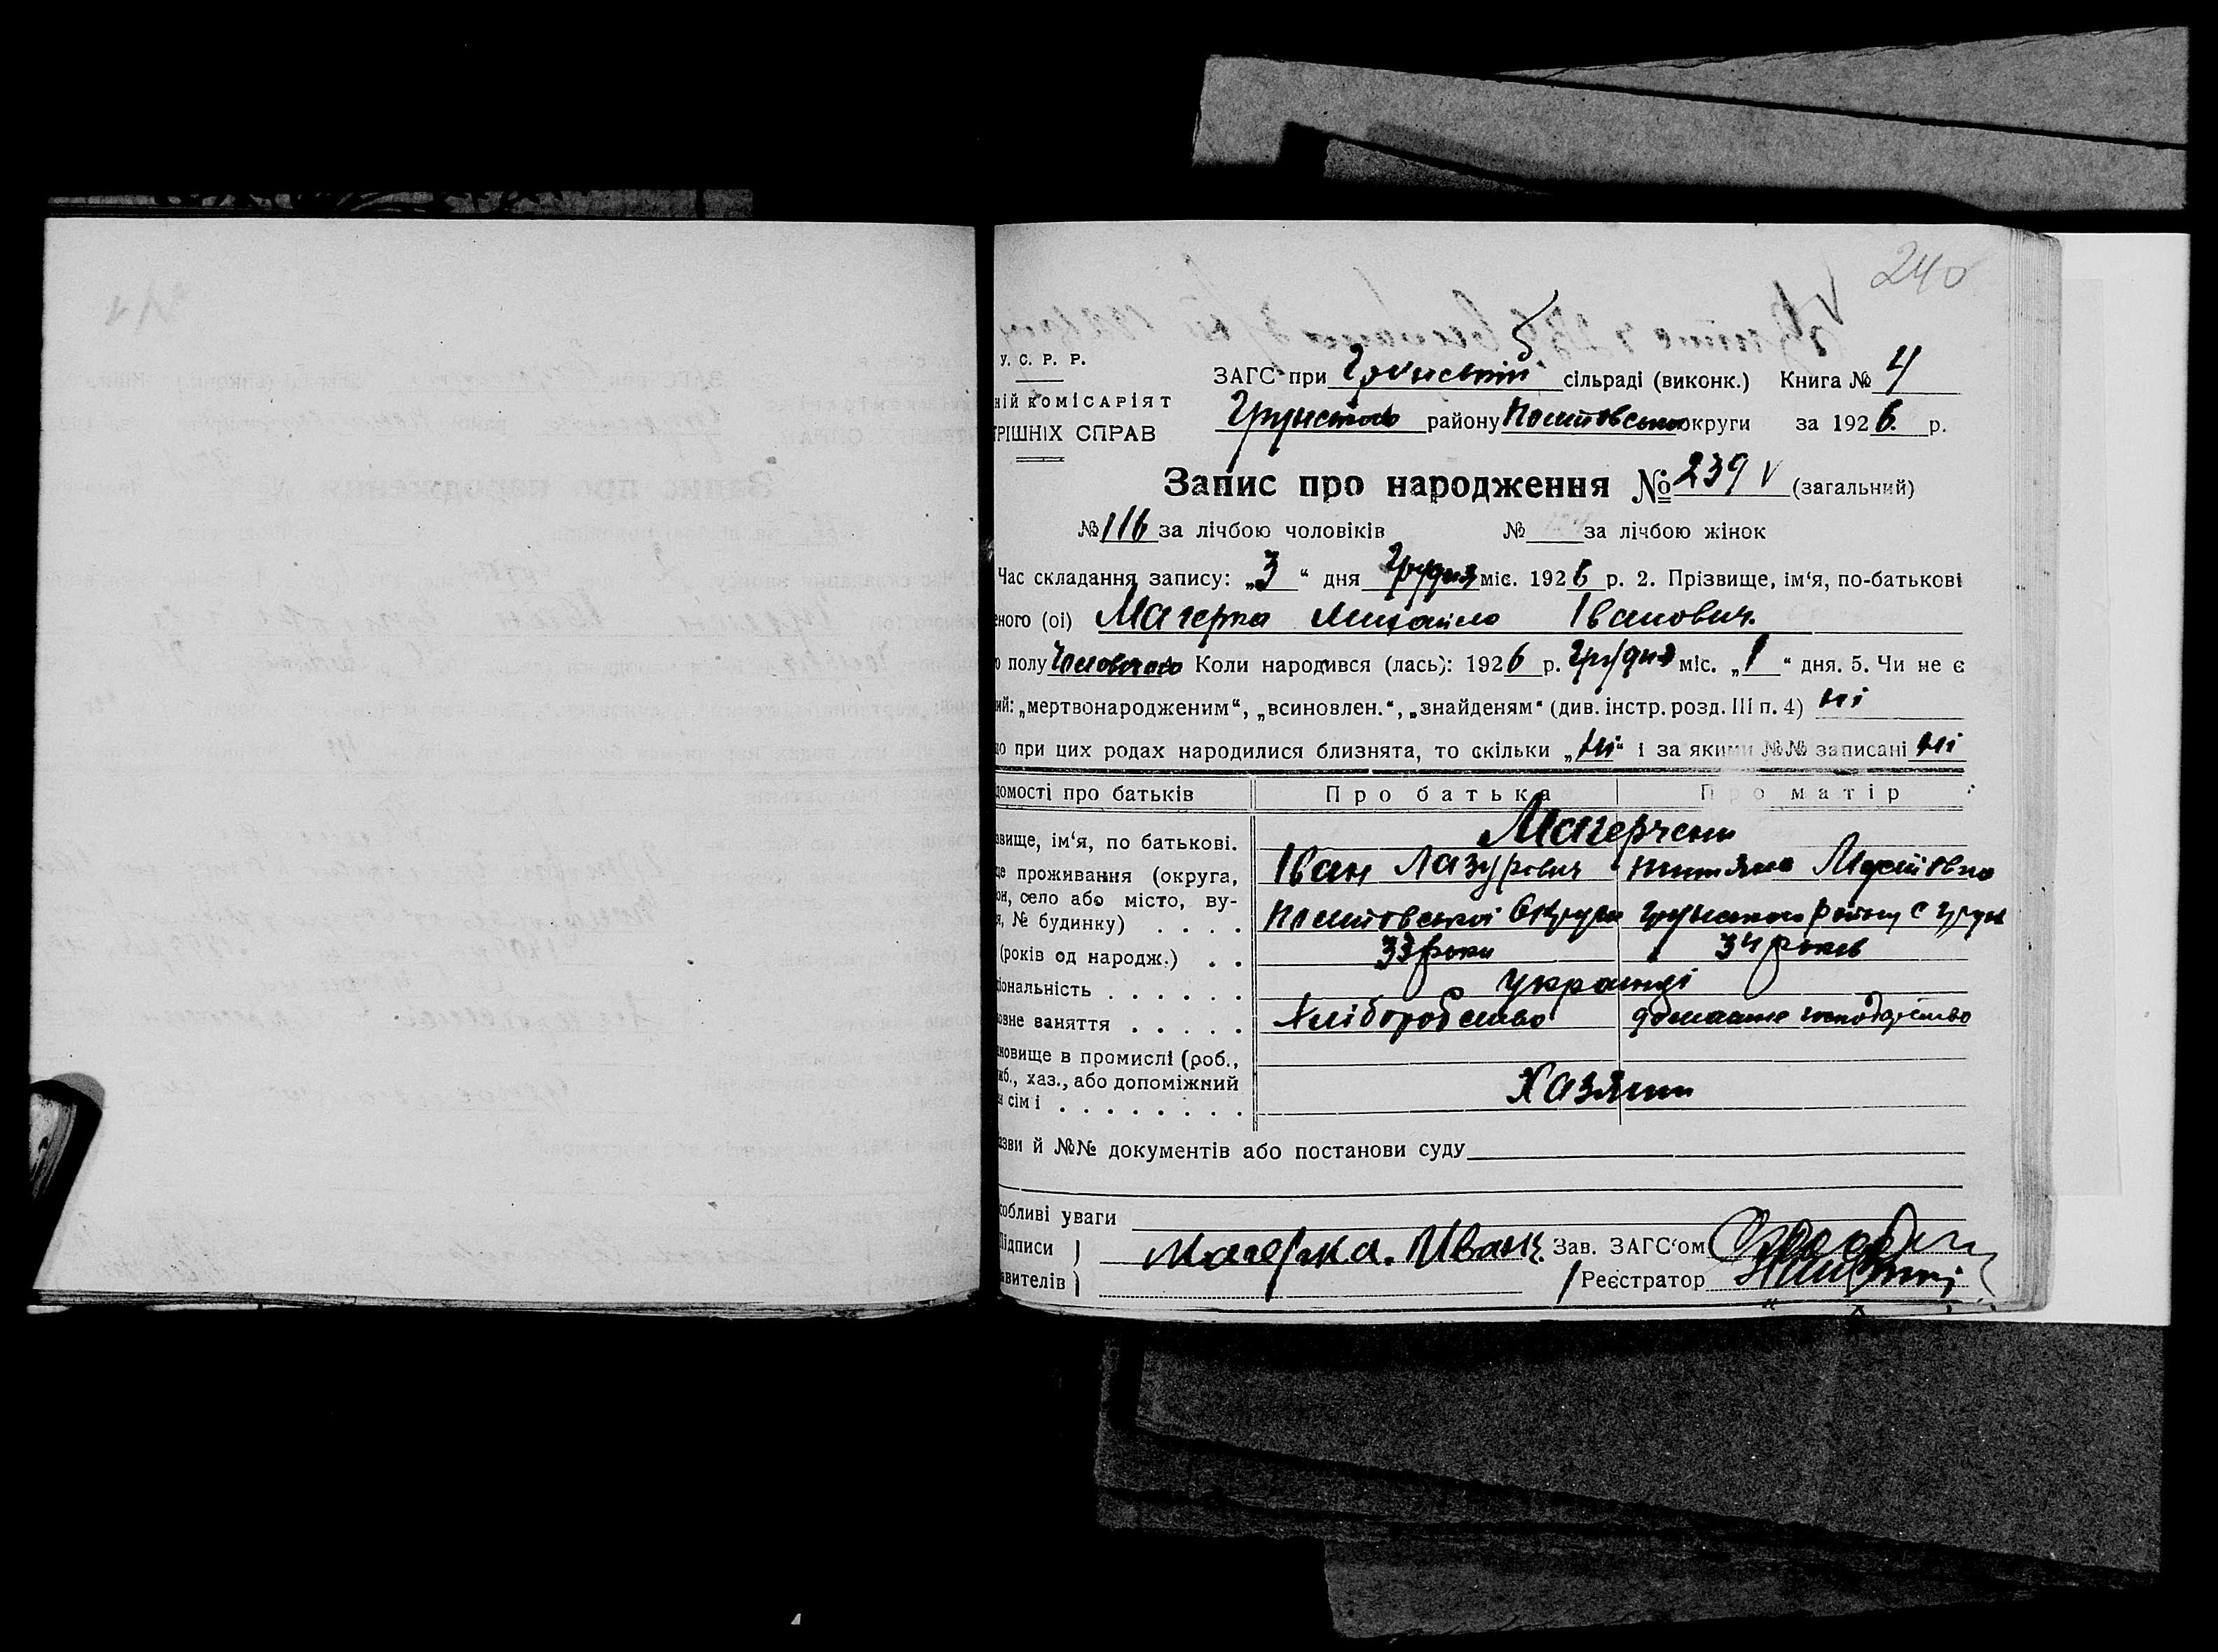 240
У. С. Р. Р.
ЗАГС при Грунській сільраді (виконк.) Книга № 4
ній комісаріят
Грунського району Полтовської округи за 1926 р.
трішніх справ
Запис про народження № 239 V (загальний)
№ 116 за лічбою чоловіків № за лічбою жінок
Час складання запису: „3“ дня Грудня міс. 1926 р. 2. Прізвище, ім‘я, по-батькові
еного (ої) Магерка Михайло Іванович.
о полу Чоловічого Коли народився (лась): 1926 р. Грудня міс. „1“ дня. 5. Чи не є
ий: „мертвонародженим“, „всиновлен.“, „знайденям“ (див. інстр. розд. III п. 4) ні
що при цих родах народилися близнята, то скільки „ні“ і за якими №№ записані ні
домості про батьків Про батька Про матір
Магерчени
звище, ім‘я, по батькові. Іван Лазурович
це проживання (округа,
он, село або місто, ву-
я, № будинку) . . . . Полтовської Округи Грунського району с Грунь
(років од народж.) . . 33 роки 34 років
ціональність . . . . . . українці
овне заняття . . . . . Хліборобство домашне господарство
новище в промислі (роб.,
жб., хаз., або допоміжний
н сім і . . . . . . . . Хазяіни
азви й №№ документів або постанови суду
собливі уваги
Підписи } Магерка. Иван. Зав. ЗАГС‘ом
явителів } Реєстратор